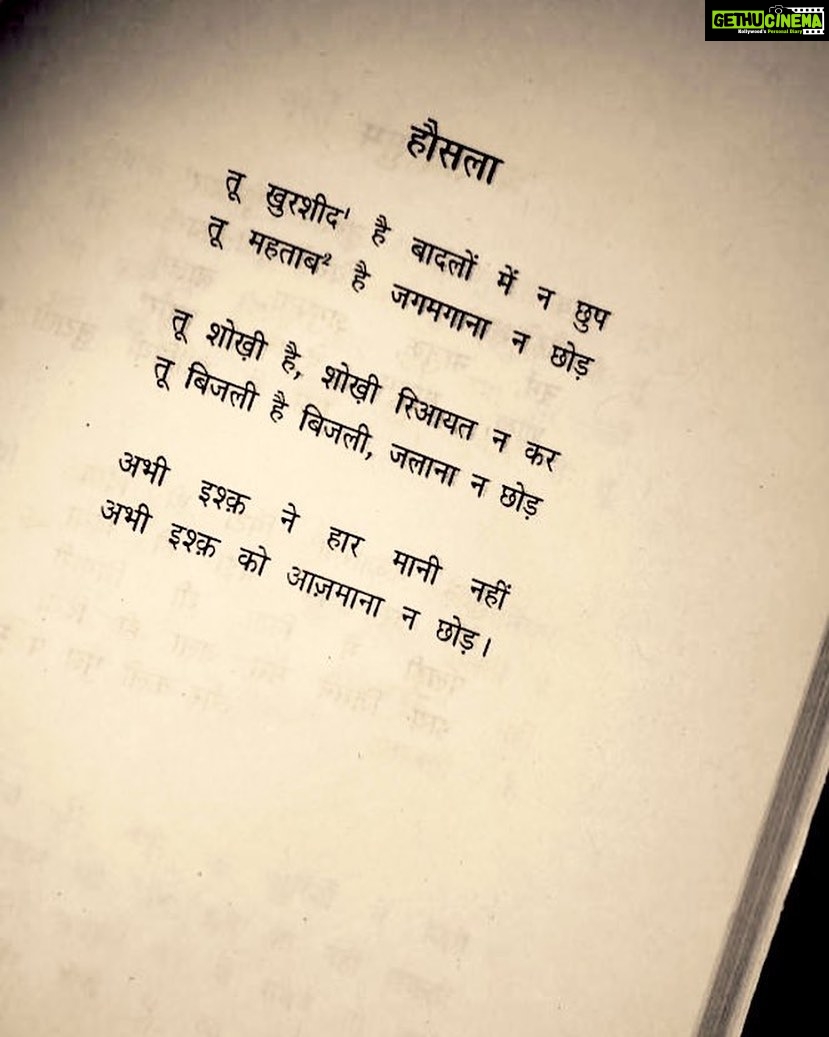 GETHUCINEMA
Kollywood's Personal Diary
हौसला
तू खुरशीद¹ है बादलों में न छुप
तू महताब² है जगमगाना न छोड़
तू शोख़ी है, शोख़ी रिआयत न कर
तू बिजली है बिजली, जलाना न छोड़
अभी इश्क़ ने हार मानी नहीं
अभी इश्क़ को आज़माना न छोड़।